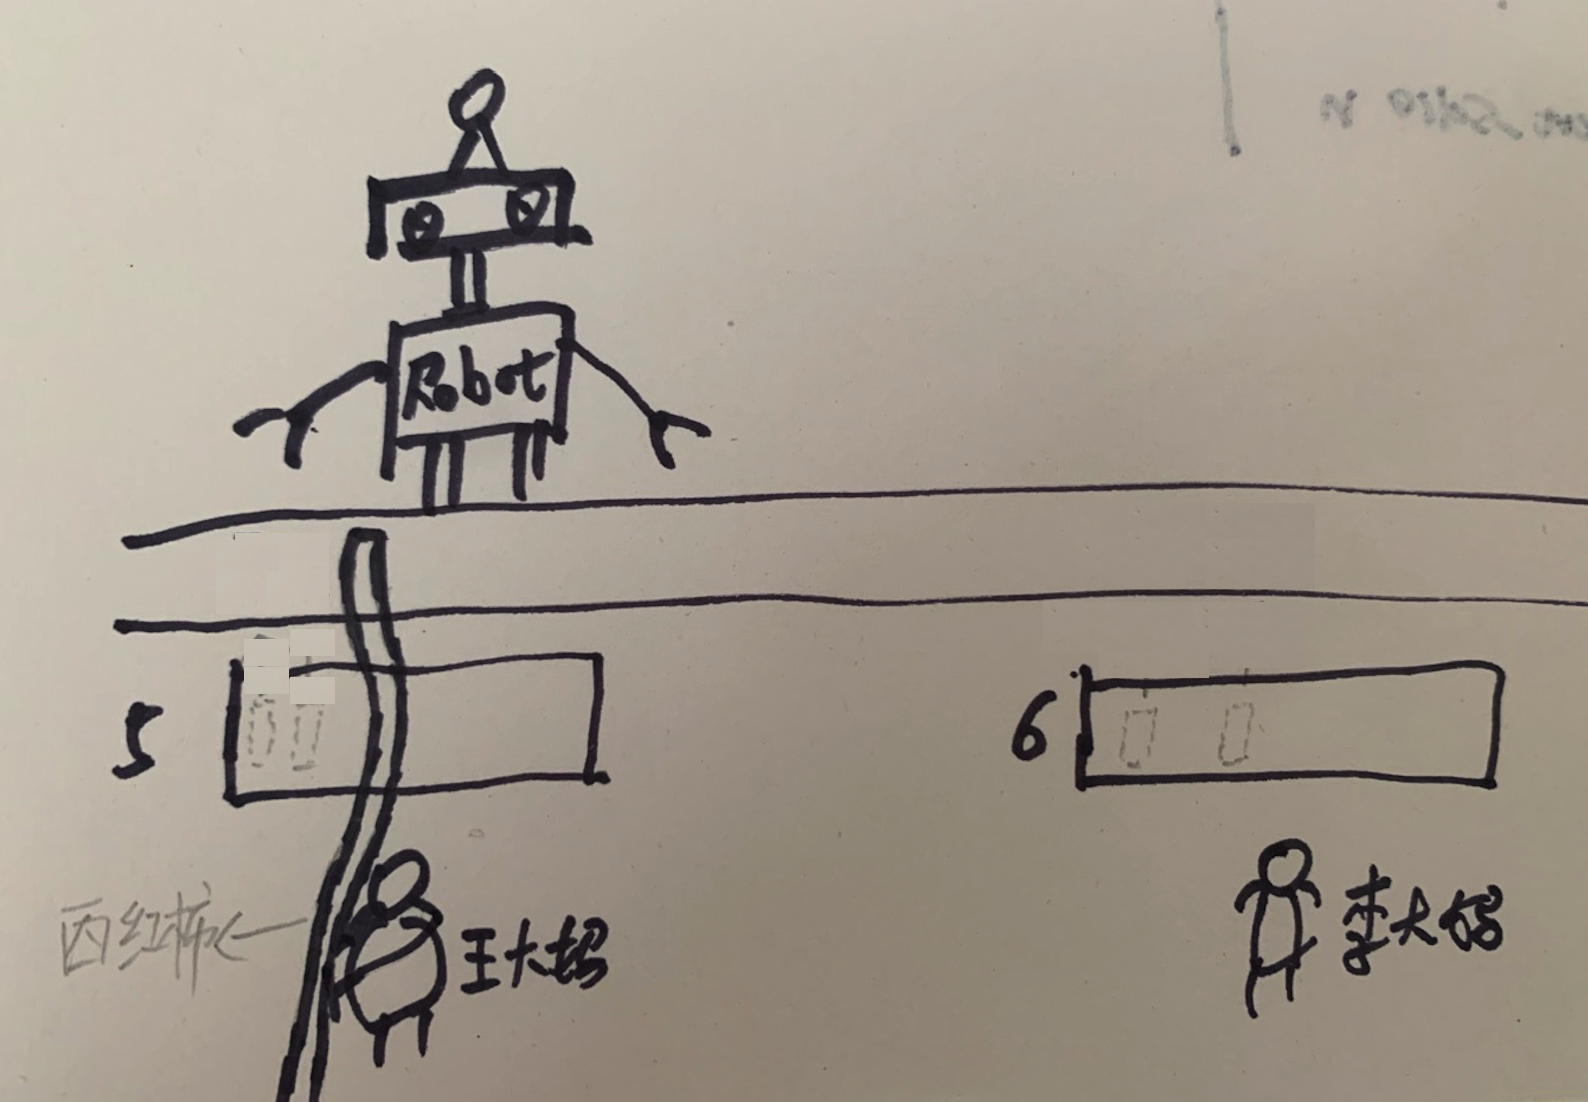 Robot
5
6
西红柿
王大妈
李大妈